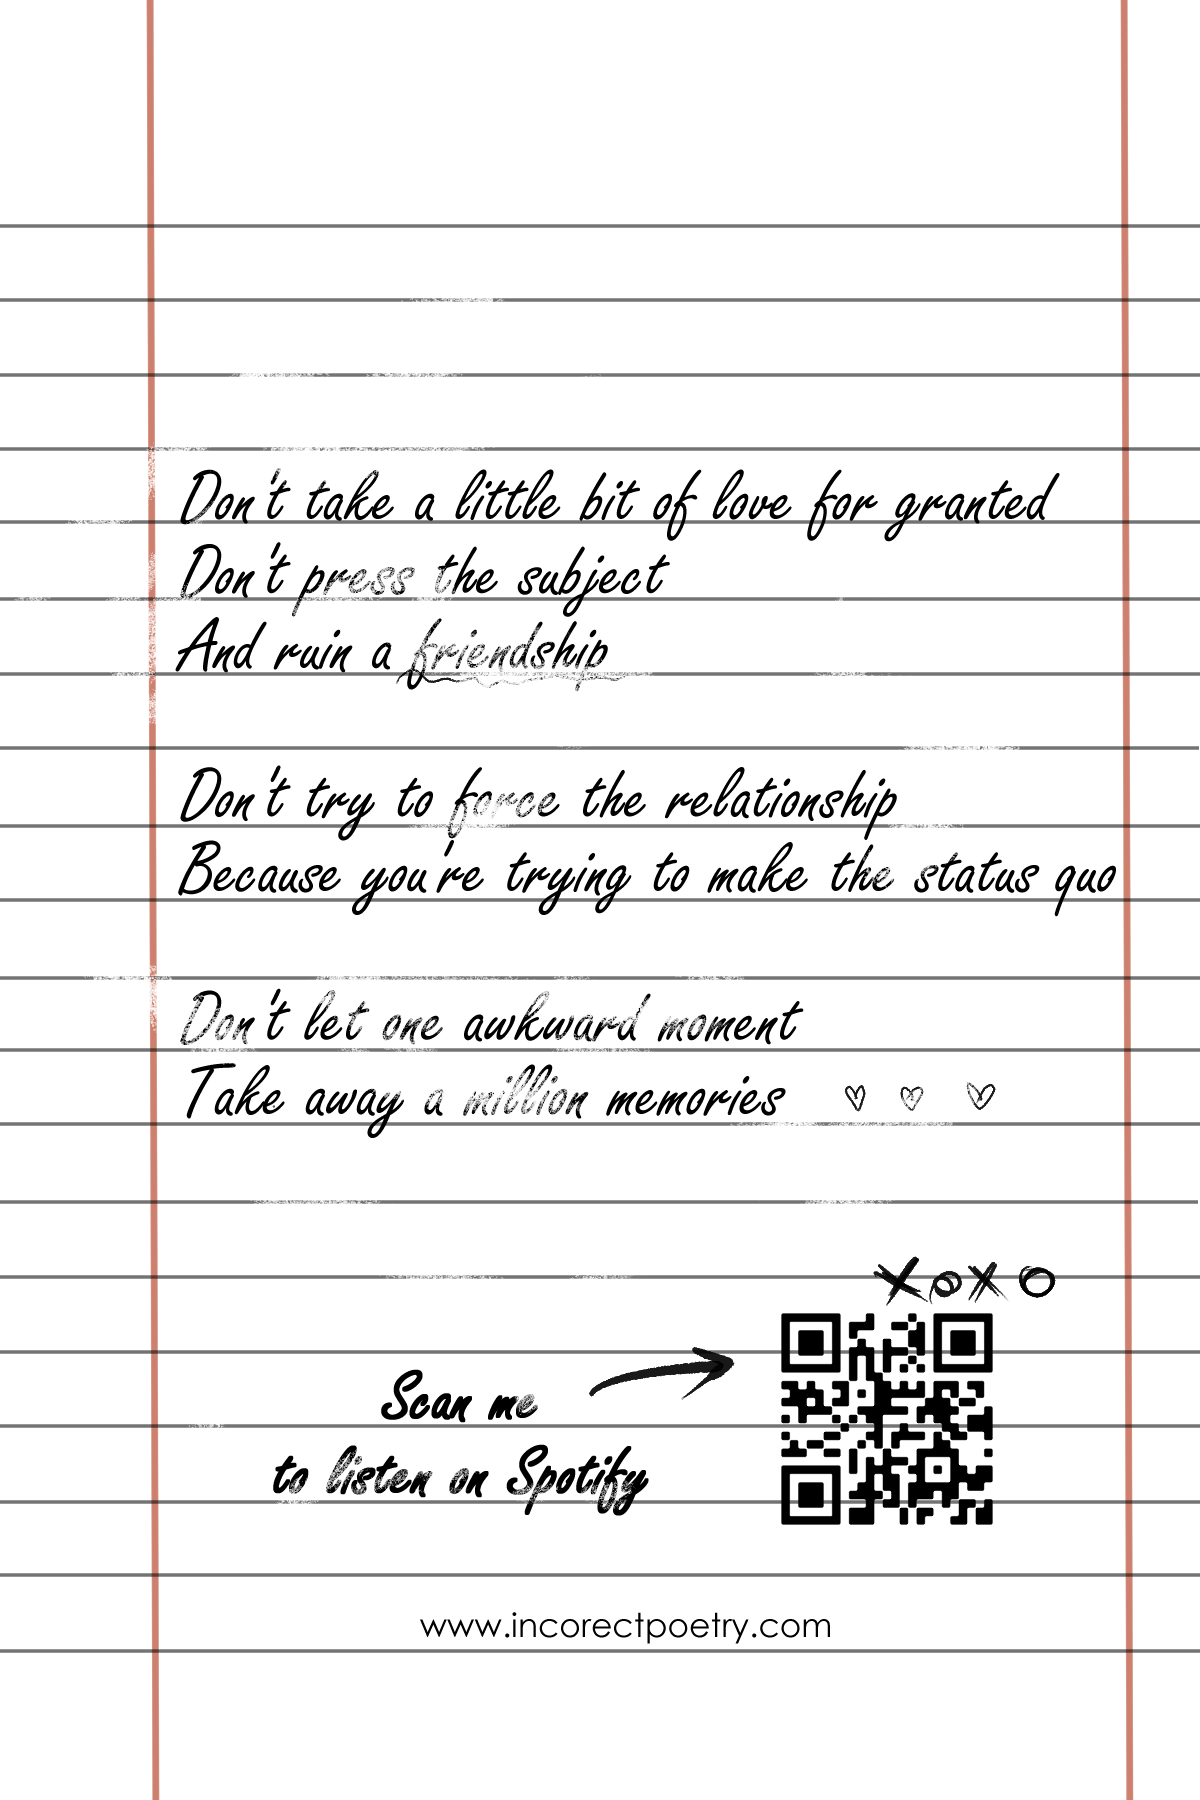 Don't take a little bit of love for granted
Don't press the subject
And ruin a friendship
Don't try to force the relationship
Because you're trying to make the status quo
Don't let one awkward moment
Take away a million memories
XOXO
Scan me
to listen on Spotify
www.incorectpoetry.com